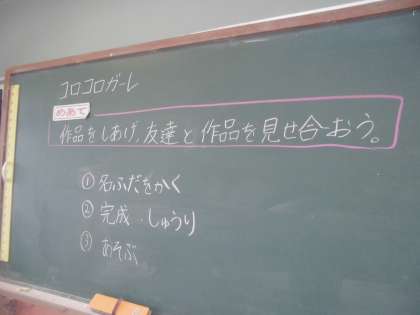 コロコロガーレ
めあて
作品をしあげ、友達と作品を見せ合おう。
① 名ふだをかく
② 完成・しゅうり
③ あそぶ